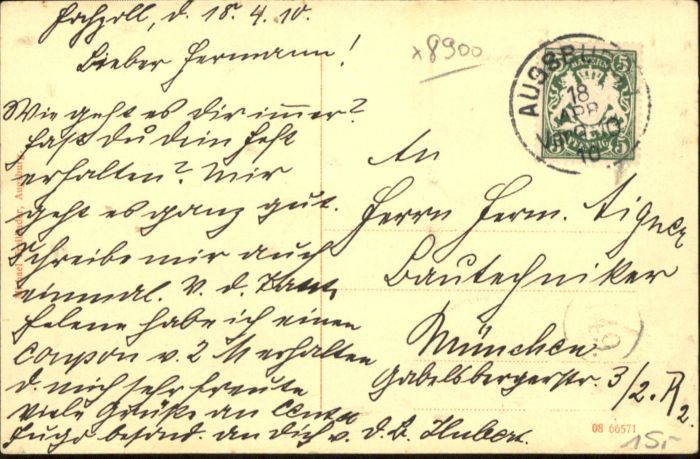 Hochzoll, d. 18. 4. 10.
Lieber Hermann!
Wie geht es dir immer?
Hast du dein Heft
erhalten? Mir
geht es ganz gut.
Schreibe mir auch
einmal. V. d. Tant.
Helene habe ich einen
Coupon v. 2 M erhalten
d. mich sehr freute
Viele Grüße an
Hugo besond. an Dich v. d. B. Hubert.
x8900
AUGSBURG
18
APR
10
BAYERN
5 5
5 5
An
Herrn Herm. Aigner
Bautechniker
München
Gabelsbergerstr. 3/2. R
2.
08 66571
15,-